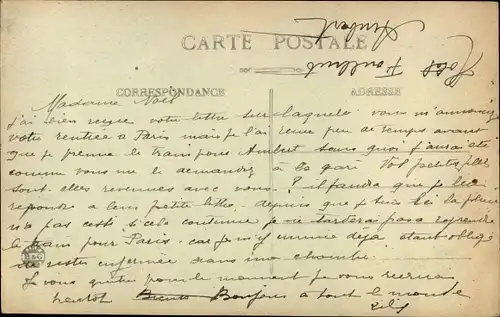 Hotel
Ambert
CARTE POSTALE
CORRESPONDANCE
ADRESSE
Madame Noël
J'ai bien reçue votre lettre sur laquelle vous m'annoncez
votre rentrée a Paris mais je l'ai reçue peu de temps avant
que je prenne le train pour Ambert sans quoi j'aurai été
comme vous me le demandiez à la gare Vos petites filles
sont elles revenues avec vous ? il faudra que je leur
reponde a leur petite lettre. depuis que je suis ici la pluie
n'a pas cessé si cela continue je ne tarderai pas a reprendre
le train pour Paris car je m'y ennuie déja étant obligé
de rester enfermée dans une chambre.
Je vous quitte pour le moment je vous
bientot Bonjour a tout le monde
B&G